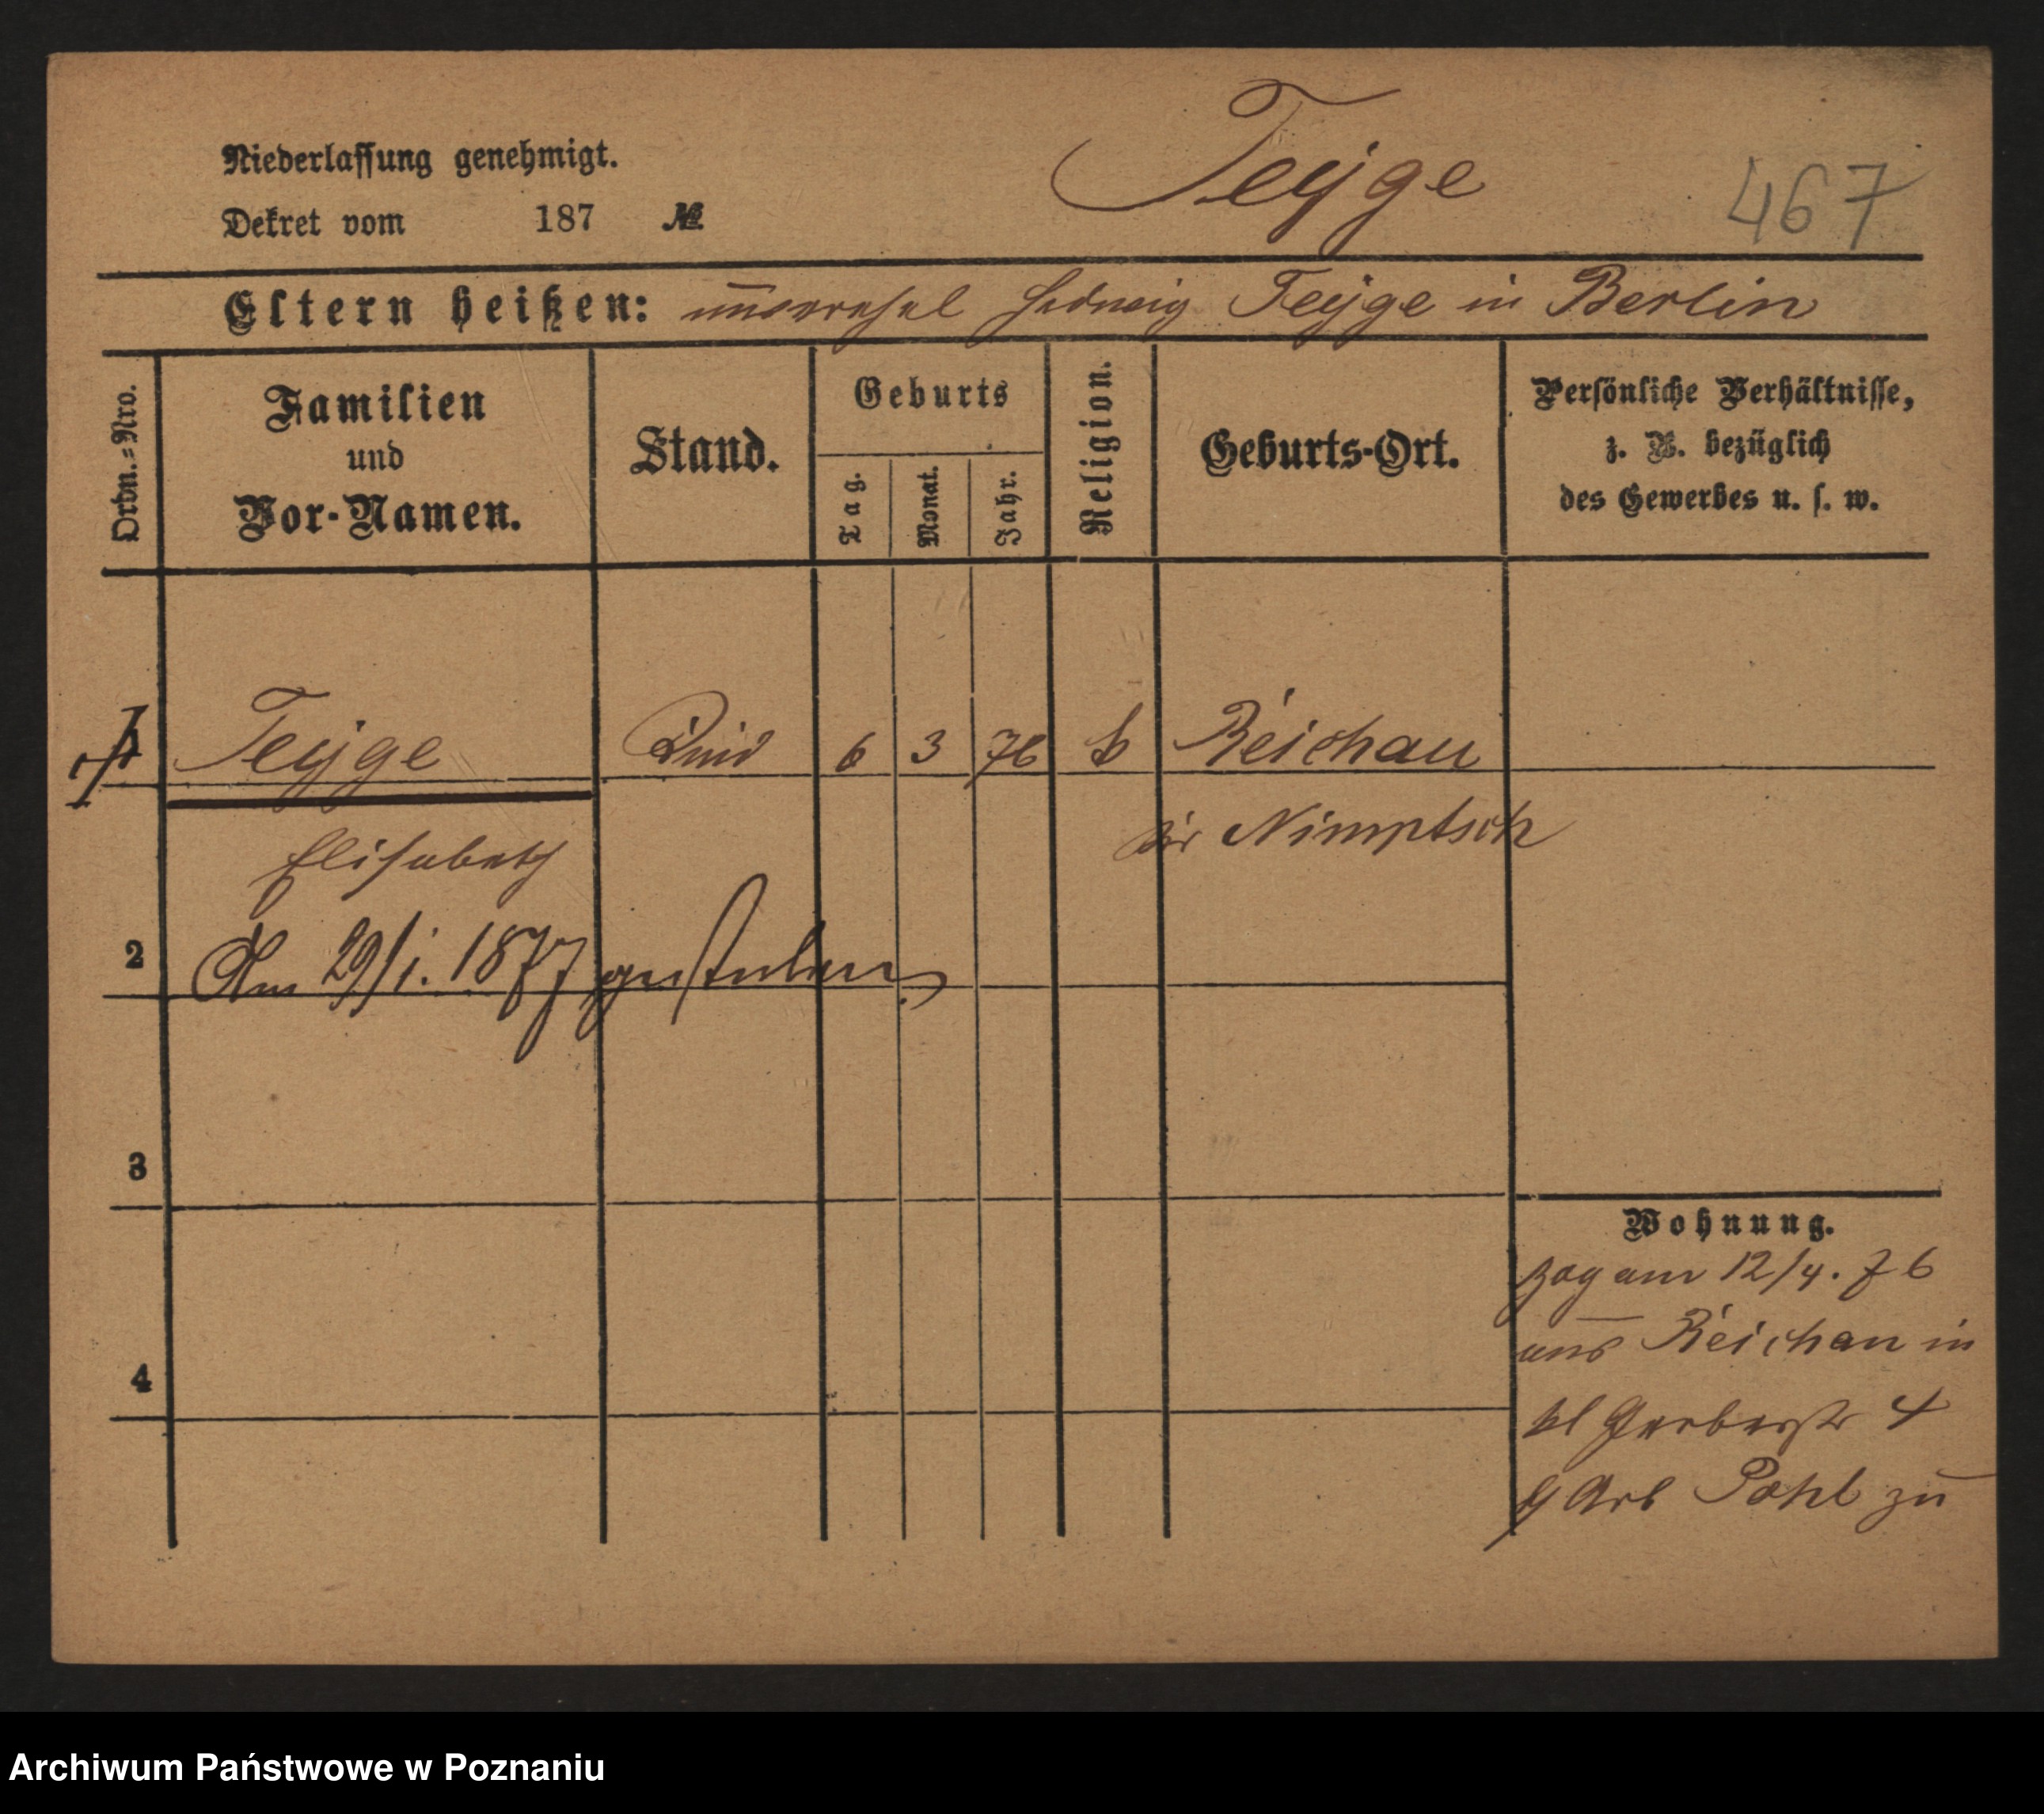 Niederlassung genehmigt.
Dekret vom 187 №
Teyge
467
Eltern heißen: unverehel Hedwig Teyge in Berlin
Ordn.=Nro.
Familien
und
Vor-Namen.
Stand.
Geburts
Tag.
Monat.
Jahr.
Religion.
Geburts-Ort.
Persönliche Verhältnisse,
z. B. bezüglich
des Gewerbes u. s. w.
1 Teyge Kind 6 3 76 k Reichau
Kr Nimptsch
Elisabeth
2 Am 29/1. 1877 gestorben
3
4
Wohnung.
Zog am 12/4. 76
aus Reichau in
kl Gerberstr 4
b Arb Pohl zu
Archiwum Państwowe w Poznaniu